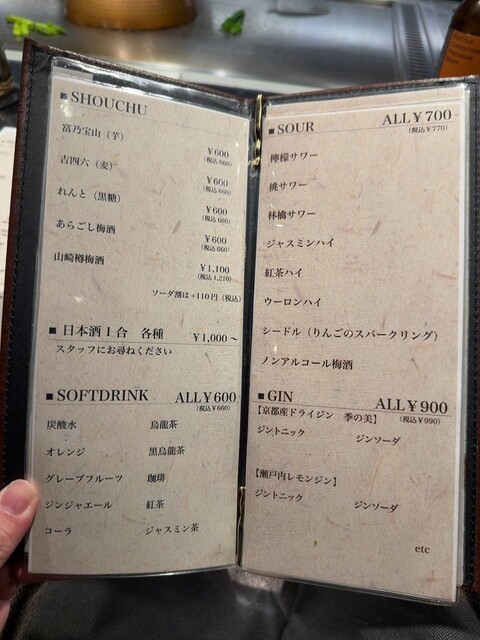 ■ SHOUCHU
富乃宝山（芋）
￥600
(税込 660)
吉四六（麦）
￥600
(税込 660)
れんと（黒糖）
￥600
(税込 660)
あらごし梅酒
￥600
(税込 660)
山崎樽梅酒
￥1,100
(税込 1,210)
ソーダ割は+110円（税込）
■ 日本酒１合　各種　￥1,000～
スタッフにお尋ねください
■ SOFTDRINK　ALL￥600
(税込￥660)
炭酸水　烏龍茶
オレンジ　黒烏龍茶
グレープフルーツ　珈琲
ジンジャエール　紅茶
コーラ　ジャスミン茶
■ SOUR　ALL￥700
(税込￥770)
檸檬サワー
桃サワー
林檎サワー
ジャスミンハイ
紅茶ハイ
ウーロンハイ
シードル（りんごのスパークリング）
ノンアルコール梅酒
■ GIN　ALL￥900
(税込￥990)
【京都産ドライジン　季の美】
ジントニック　ジンソーダ
【瀬戸内レモンジン】
ジントニック　ジンソーダ
etc